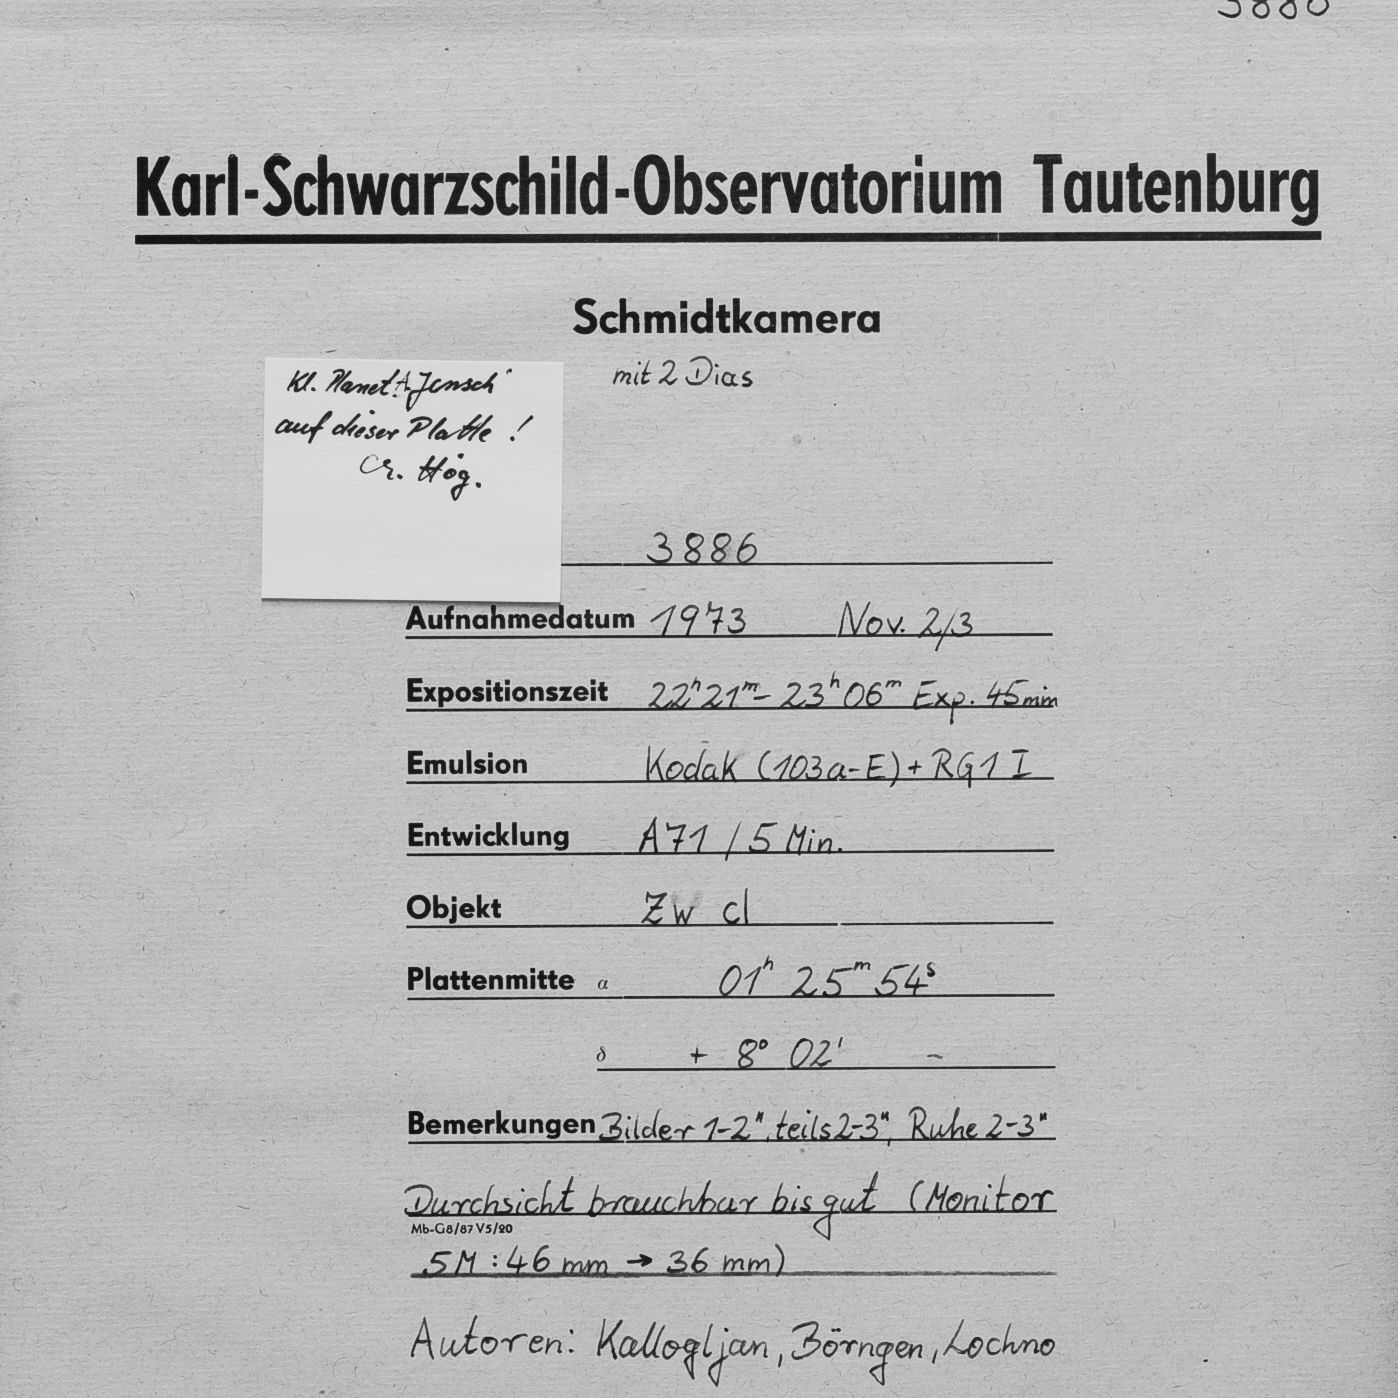 3880
Karl-Schwarzschild-Observatorium Tautenburg
Schmidtkamera
mit 2 Dias
Kl. Planet A. Jensch
auf dieser Platte !
Høg.
3886
Aufnahmedatum 1973 Nov. 2/3
Expositionszeit 22h 21m – 23h 06m Exp. 45min
Emulsion Kodak (103a-E) + RG1 I
Entwicklung A71 / 5 Min.
Objekt Zw cl
Plattenmitte α 01h 25m 54s
δ + 8° 02' –
Bemerkungen Bilder 1-2", teils 2-3", Ruhe 2-3"
Durchsicht brauchbar bis gut (Monitor
Mb-G8/87 V5/20
5M : 46 mm → 36 mm)
Autoren: Kallogljan, Börngen, Lochno